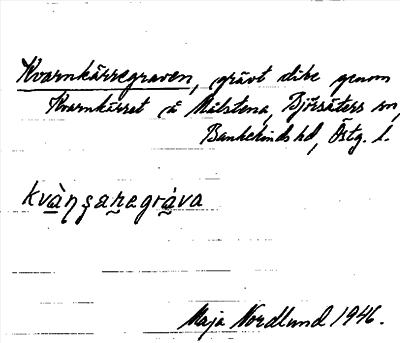 Kvarnkärregraven, grävt dike genom
Kvarnkärret å Målstena, Björsäters sn,
Bankekinds hd, Östg. l.
kvàŋʂaʀegráva
Maja Nordlund 1946.